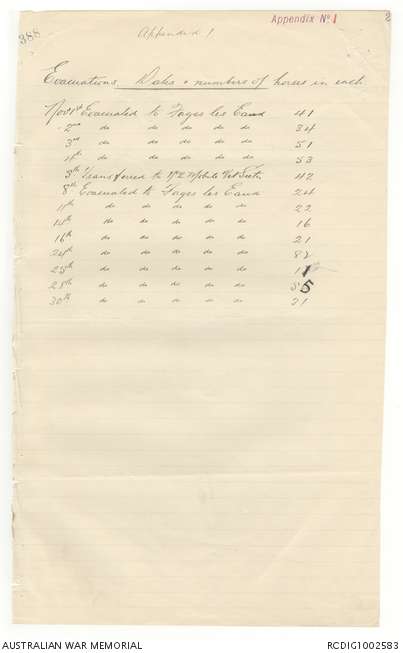 388
Appendix 1
Appendix No. 1
2
Evacuations. Dates & numbers of horses in each
Nov 1st Evacuated to Forges les Eaux 41
2nd do do do do do 34
3rd do do do do do 51
4th do do do do do 53
8th Transferred to No 2 Mobile Vet Sectn 42
8th Evacuated to Forges les Eaux 24
11th do do do do do 22
14th do do do do do 16
16th do do do do do 21
24th do do do do do 82
25th do do do do do
28th do do do do do
30th do do do do do 21
AUSTRALIAN WAR MEMORIAL
RCDIG1002583